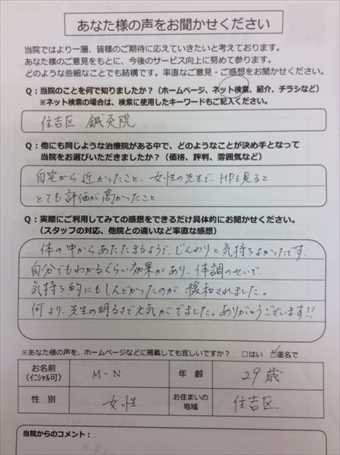 あなた様の声をお聞かせください
当院ではより一層、皆様のご期待に応えていきたいと考えております。
あなた様のご意見をもとに、今後のサービス向上に努めて参ります。
どのような些細なことでも結構です。率直なご意見・ご感想をお聞かせください。
Q：当院のことを何で知りましたか？（ホームページ、ネット検索、紹介、チラシなど）
※ネット検索の場合は、検索に使用したキーワードもご記入ください。
住吉区 鍼灸院
Q：他にも同じような治療院がある中で、どのようなことが決め手となって
当院をお選びいただきましたか？（価格、評判、雰囲気など）
自宅から近かったこと、女性の先生で、HPを見ると
とても評価が高かったこと
Q：実際にご利用してみての感想をできるだけ具体的にお聞かせください。
（スタッフの対応、他院との違いなど率直な感想）
体の中からあたたまるようで、じんわりと気持ちよかったです。
自分でもわかるくらい効果があり、体調のせいで
気持ち的にもしんどかったのが緩和されました。
何より、先生の明るさで元気がでました。ありがとうございます!!
※あなた様の声を、ホームページなどに掲載しても宜しいですか？ □はい ☑匿名で
お名前 M・N 年 齢 29歳
(イニシャル可)
性 別 女性 お住まいの 住吉区
地域
当院からのコメント：